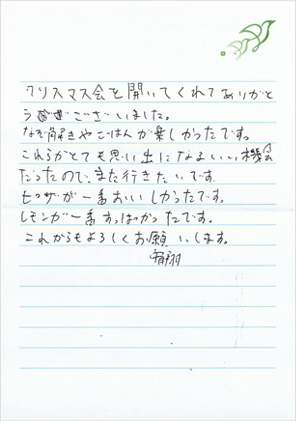 クリスマス会を開いてくれてありがと
うございました。
なぞ解きやごはんが楽しかったです。
これらがとても思い出になるいい機会
だったので、また行きたいです
ピザが一番おいしかったです。
レモンが一番すっぱかったです。
これからもよろしくお願いします。